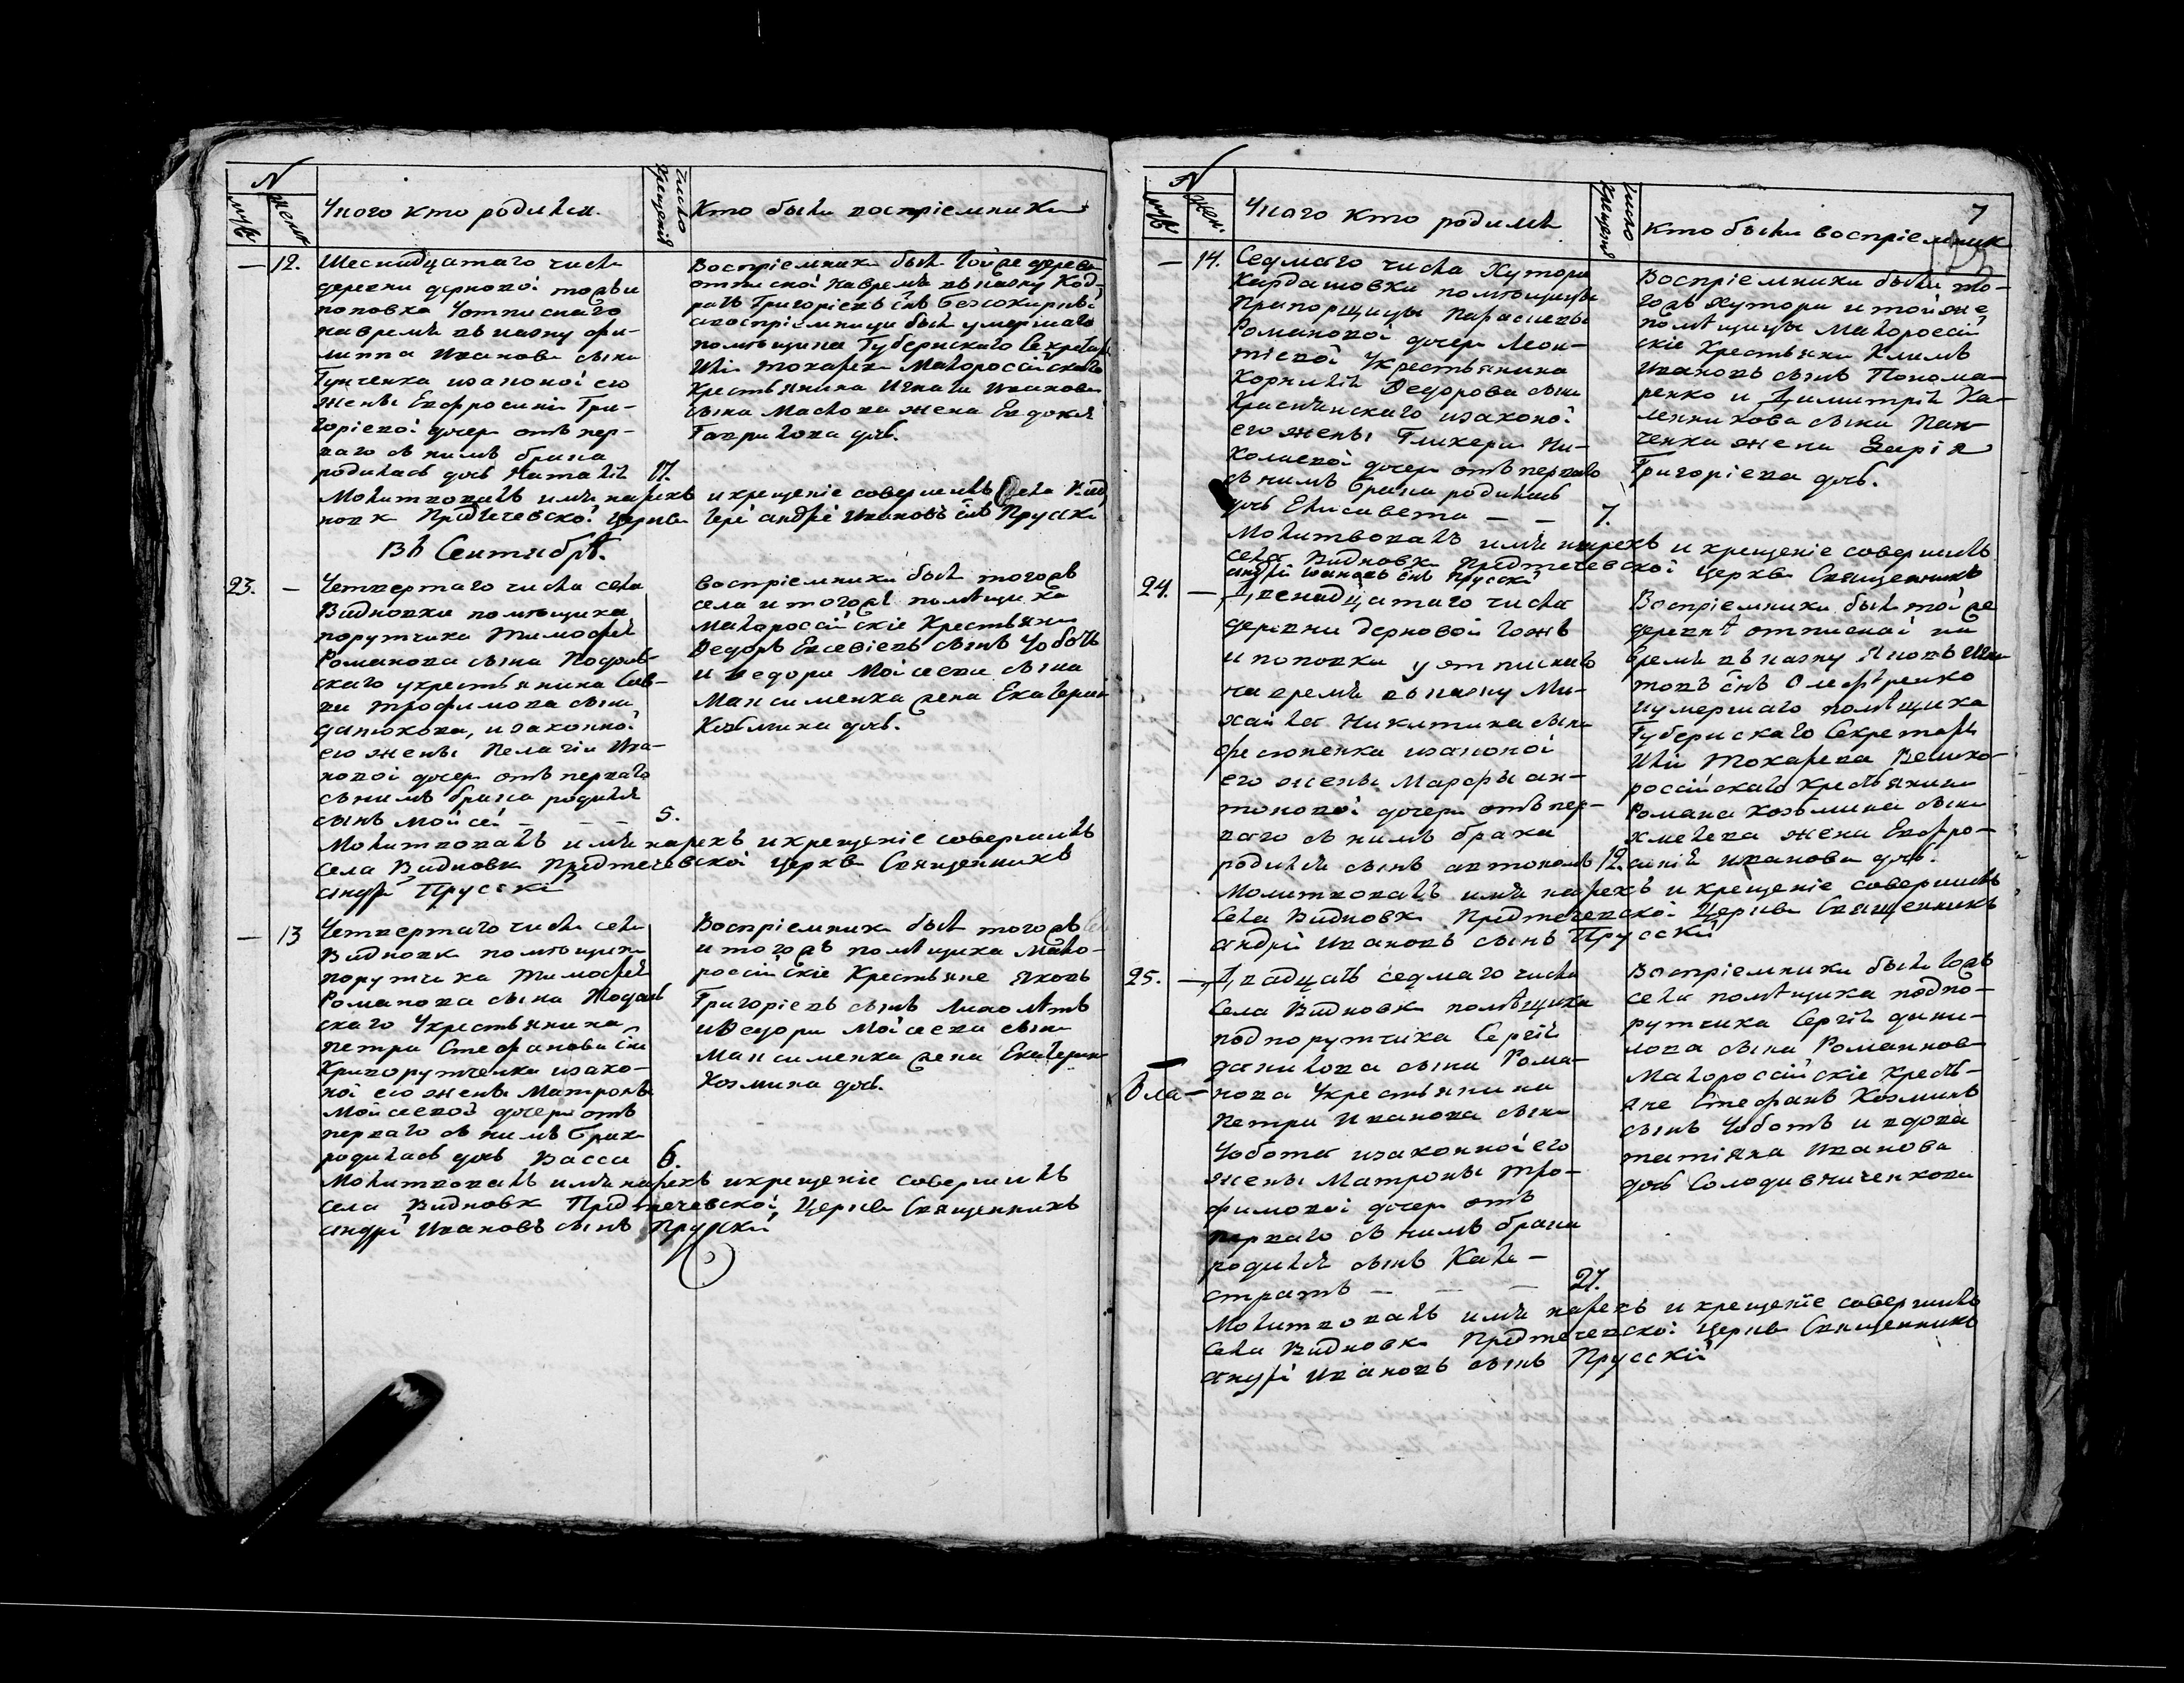 N
муж
женск
У кого кто родился.
Число крещения
Кто были восприемники
— 12. Шеснадцатаго числа
деревни дерновой тожъ и
поповка У отписнаго
на время въ казну фи-
липпа Иванова сына
законной его
жены Евфросинiи Гри-
горiевой дочери отъ пер-
ваго съ нимъ брака
родилась дочь Наталiя 17.
Восприемники были той же дерев
отписной на время въ казну
Григорiевъ снъ
а восприемницы были умершаго
помѣщика Губернскаго Секретаря
Илiи Токарева Малороссiйскаго
Крестьянина Игната Иванова
сына Маслова жена Евдокiя
Гаврилова дочь.
Молитвовалъ имя нарекъ и крещенiе совершилъ Села Вид
новк Предтечевской Церкви Iерей андрей Ивановъ снъ Прускi
Въ Сентябрѣ.
23. — Четвертаго числа села
Видновки помѣщика
порутчика Тимофея
Романова сына
скаго у крестьянина Сав-
вы Трофимова сына
и законной
его жены Пелагiи Ива-
новой дочери отъ перваго
съ нимъ брака родился
сынъ Мойсей — — — 5.
Восприемники были тогожъ
села и тогожъ помѣщика
малороссiйскiе Крестьяне
Ѳедоръ Евсевiевъ сынъ Чоботъ
и Ѳедора Мойсеева сына
Максименка жена Екатерин
Козьмина дочь.
Молитвовалъ имя нарекъ и крещенiе совершилъ
Села Видновк Предтечевской Церкви Священникъ
андрей Прусскiй
— 13 Четвертаго числа села
Видновк помѣщика
порутчика Тимофея
Романова сына
скаго У крестьянина
Петра Стефанова сна
Криворутченка и зако-
ной его жены Матроны
Мойсеевой дочери отъ
перваго съ нимъ брака
родилась дочь Васса 6.
Восприемник были тогожъ
и тогожъ помѣщика Мало-
россiйскiе Крестьяне Яковъ
Григорiевъ сынъ
и Ѳедора Мойсеева сына
Максименка жена Екатерин
Козмина дочь.
Молитвовалъ имя нарекъ и крещенiе совершилъ
села Видновк Предтечевской Церкви Священникъ
андрей Ивановъ сынъ Прускiй
N
муж
жен.
У кого кто родился
Число крещения
Кто были восприемник
7
— 14. Седмаго числа Хутора
Кардашовки помѣщицы
Прапорщицы Параскевы
Романовой дочери Леон-
тiевой У крестьянина
Корнилiя Ѳедорова сына
Красичинскаго и законой
его жены Гликерiи Ни-
колаевой дочери отъ перваго
съ нимъ брака родилась
дочь Елисавета — — 7.
Восприемники были то-
гожъ хутора и той же
помѣщицы Малороссiй
скiе Крестьяне Климъ
Ивановъ сынъ Понома-
ренко и Димитрiя Ка-
ленникова сына Пан-
ченка жена Дарiя
Григорiева дочь.
Молитвовалъ имя нарекъ и крещенiе совершилъ
села Видновк Предтечевской Церкви Священникъ
андрей Ивановъ снъ Прускi
24. — Двенадцатаго числа
деревни Дерновой тожъ
и поповки у отписнаго
на время въ казну Ми-
хайла Никитина сына
Фесюненка и законой
его жены Марфы ан-
тоновой дочери отъ пер-
ваго съ нимъ брака
родился сынъ автономъ 12.
Восприемники были той же
деревнѣ отписной на
время въ казну Яковъ
снъ
и умершаго помѣщика
Губернскаго Секретаря
Илiи Токарева Велико-
россiйскаго крестьянина
Романа Козьмина сына
Хмелева жена Евфро-
синiя Иванова дочь.
Молитвовалъ имя нарекъ и крещенiе совершилъ
Села Видновк Предтечевской Церкви Священникъ
андрей Ивановъ сынъ Прусскiй
25. — Двадцать седмаго числа
Села Видновк помѣщика
подпорутчика Сергiя
данилова сына Рома-
нова У крестьянина
Петра Иванова сына
Чобота и законной его
жены Матроны Тро-
фимовой дочери отъ
перваго съ нимъ брака
родился сынъ Кали-
стратъ — — — 27.
Восприемники были тожъ
села помѣщика подпо-
рутчика Сергiя дани-
лова сына Романова
Малороссiйскiе кресть-
яне Стефанъ Козминъ
сынъ Чоботъ и вдова
татiяна Иванова
дочь
Молитвовалъ имя нарекъ и крещенiе совершилъ
Села Видновк Предтечевской Церкви Священникъ
андрей Ивановъ сынъ Прусскiй